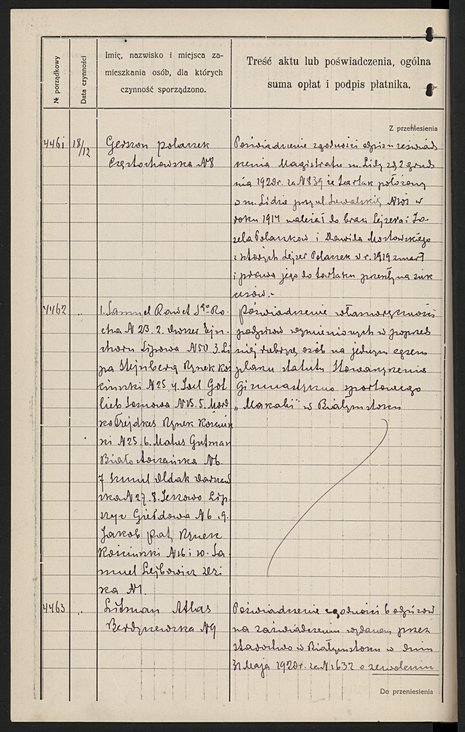 № porządkowy
Data czynności
Imię, nazwisko i miejsca za-
mieszkania osób, dla których
czynność sporządzono.
Treść aktu lub poświadczenia, ogólna
suma opłat i podpis płatnika.
Z przeniesienia
4461 18/12
Gerszon Polaczek
Częstochowska №8
Poświadczenie zgodności odpisu zaświad-
czenia Magistratu m. Lidy z d. 2 grud-
nia 1920 r. za № 839 że tartak położony
w m. Lidzie przy ul. Suwalskiej
roku 1914 należał do braci Lejzera i Jo-
sela Polaczków i Dawida
z których Lejzer Polaczek w r. 1919 zmarł
i prawa jego do tartaku przeszły na suk-
cesorów.
4462 "
1. Samuel Rawet Sgo Ro-
cha № 23. 2.
Lipowa № 50 3. Li-
pa Sztejnberg Rynek Koś-
ciuszki № 25 4. Joel Got-
lieb № 15. 5. Mord-
ko Rynek Kościusz-
ki № 25. 6. Matus Gutman
№ 6.
7.
№ 27. 8.
Giełdowa № 6. 9.
Jakob Pat Rynek
Kościuszki № 16 i 10. Sa-
muel Lejbowicz
№ 1.
Poświadczenie własnoręczności
podpisów wymienionych w poprzed-
niej rubryce osób na jednym egzem-
plarzu statutu Stowarzyszenia
Gimnastyczno sportowego
„Makabi" w Białymstoku
4463 "
Litman Atlas
Berdyczewska № 9
Poświadczenie zgodności 6 odpisów
na zaświadczenie wydanem przez
starostwo w Białymstoku w dniu
31 Maja 1920 r. za № 1632 o zezwoleniu
Do przeniesienia